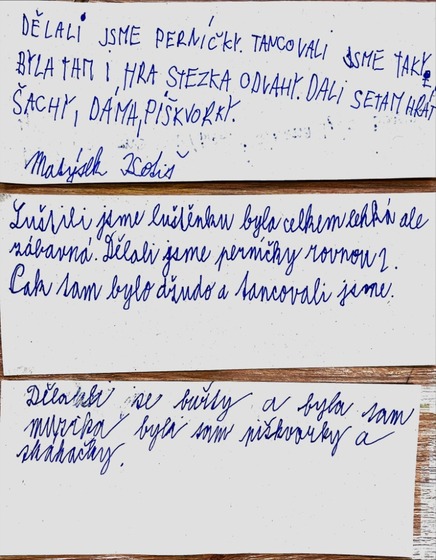 DĚLALI JSME PERNÍČKY. TANCOVALI JSME TAKY.
BYLA TAM I HRA STEZKA ODVAHY. DALI SE TAM HRÁT
ŠACHY, DÁMA, PÍŠKVORKY.
Matýsek
Luštili jsme luštěnku byla celkem lehká ale
zábavná. Dělali jsme perníčky rovnou 2.
Pak tam bylo džudo a tancovali jsme.
Dělali se buřty a byla tam
muzika byla tam piškvorky a
skákačky.